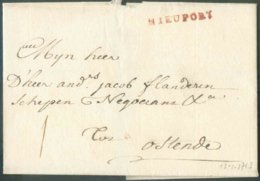 NIEUPORT
Mijn heer
D'heer and.rs jacob flanderin
schepen & Negociant &a
Tot ostende